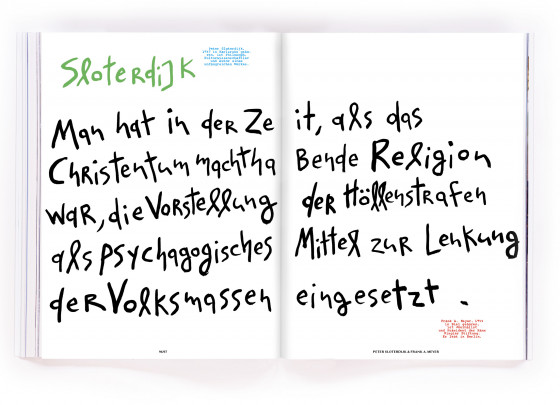 Sloterdijk
Man hat in der Zeit, als das
Christentum machthabende Religion
war, die Vorstellung der Höllenstrafen
als psychagogisches Mittel zur Lenkung
der Volksmassen eingesetzt.
PETER SLOTERDIJK & FRANK A. MEYER